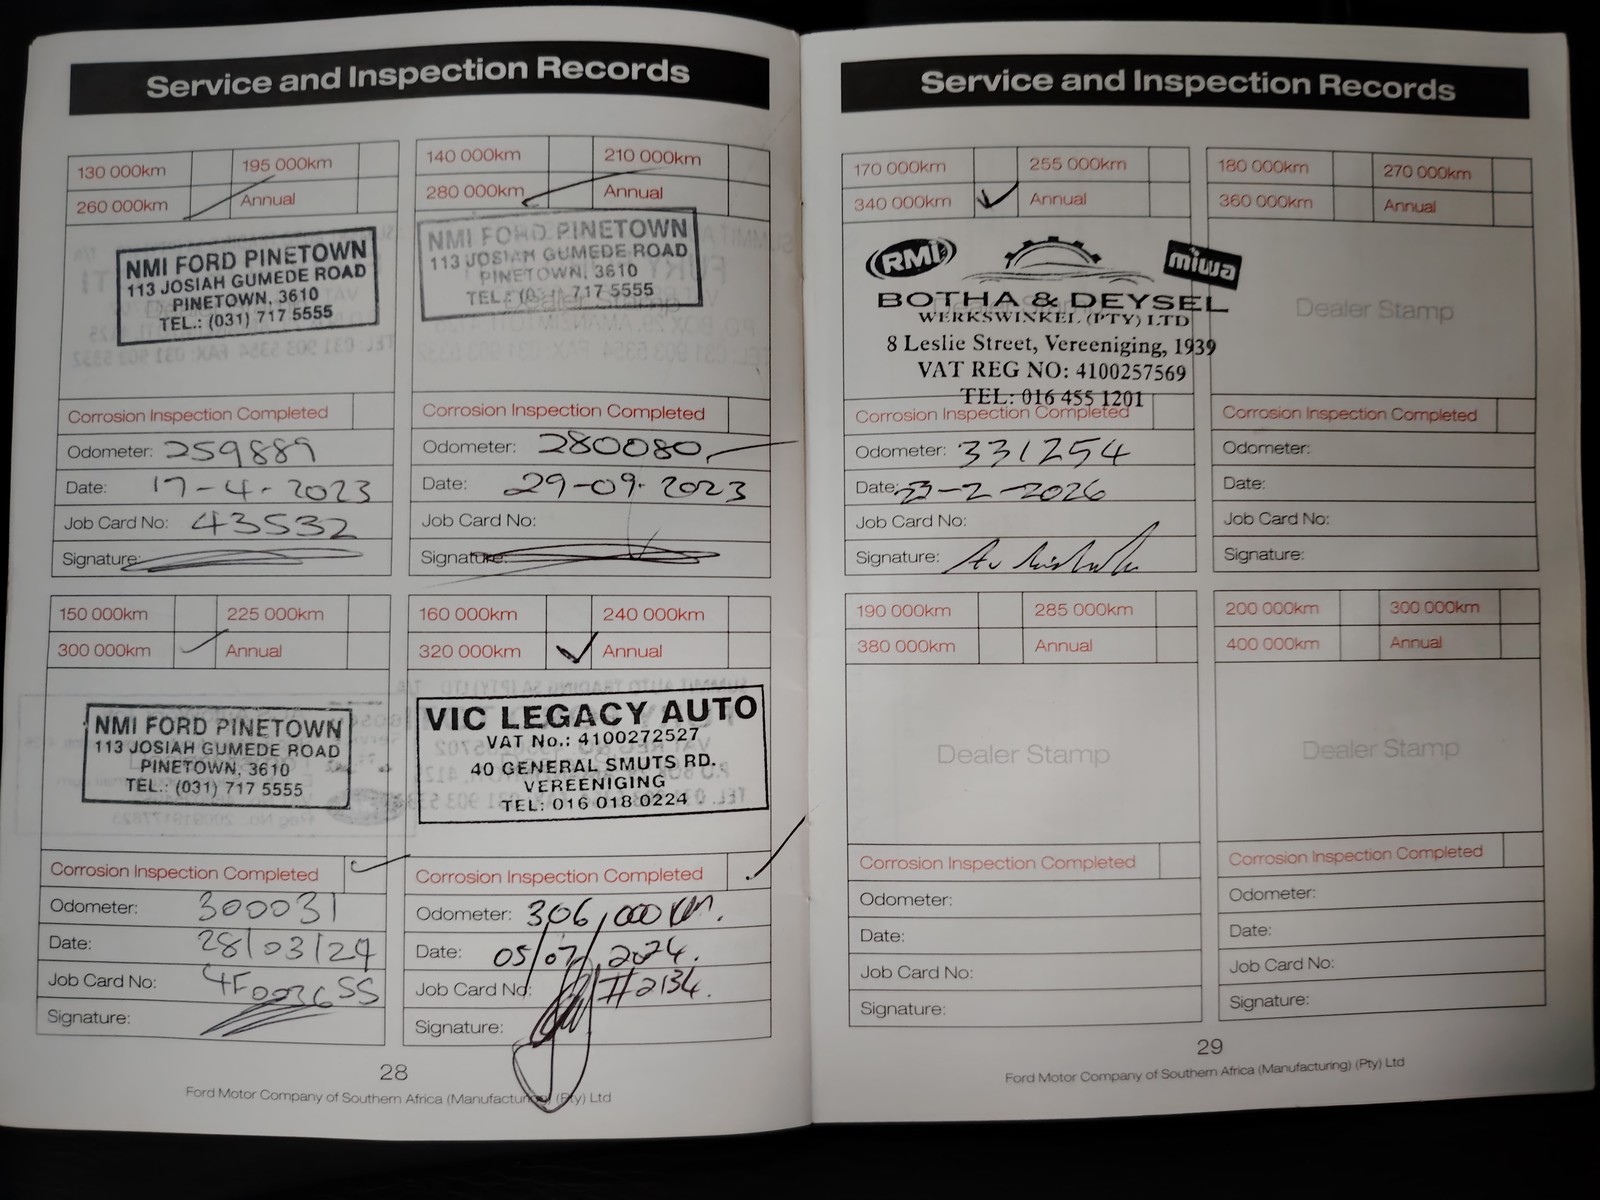 Service and Inspection Records
130 000km 195 000km
260 000km Annual
NMI FORD PINETOWN
113 JOSIAH GUMEDE ROAD
PINETOWN, 3610
TEL.: (031) 717 5555
Corrosion Inspection Completed
Odometer: 259889
Date: 17-4-2023
Job Card No: 43532
Signature:
140 000km 210 000km
280 000km Annual
NMI FORD PINETOWN
113 JOSIAH GUMEDE ROAD
PINETOWN, 3610
TEL.: (031) 717 5555
Dealer Stamp
Corrosion Inspection Completed
Odometer: 280080
Date: 29-09-2023
Job Card No:
Signature:
150 000km 225 000km
300 000km Annual
NMI FORD PINETOWN
113 JOSIAH GUMEDE ROAD
PINETOWN, 3610
TEL.: (031) 717 5555
Corrosion Inspection Completed
Odometer: 300031
Date: 28/03/24
Job Card No: 4F003655
Signature:
160 000km 240 000km
320 000km Annual
VIC LEGACY AUTO
VAT No.: 4100272527
40 GENERAL SMUTS RD.
VEREENIGING
TEL: 016 018 0224
Corrosion Inspection Completed
Odometer: 306,000 km.
Date: 05/07/2024.
Job Card No: #2134.
Signature:
28
Ford Motor Company of Southern Africa (Manufacturing) (Pty) Ltd
Service and Inspection Records
170 000km 255 000km
340 000km Annual
RMI
miwa
BOTHA & DEYSEL
WERKSWINKEL (PTY) LTD
8 Leslie Street, Vereeniging, 1939
VAT REG NO: 4100257569
TEL: 016 455 1201
Corrosion Inspection Completed
Odometer: 331254
Date: 23-2-2026
Job Card No:
Signature:
180 000km 270 000km
360 000km Annual
Dealer Stamp
Corrosion Inspection Completed
Odometer:
Date:
Job Card No:
Signature:
190 000km 285 000km
380 000km Annual
Dealer Stamp
Corrosion Inspection Completed
Odometer:
Date:
Job Card No:
Signature:
200 000km 300 000km
400 000km Annual
Dealer Stamp
Corrosion Inspection Completed
Odometer:
Date:
Job Card No:
Signature:
29
Ford Motor Company of Southern Africa (Manufacturing) (Pty) Ltd